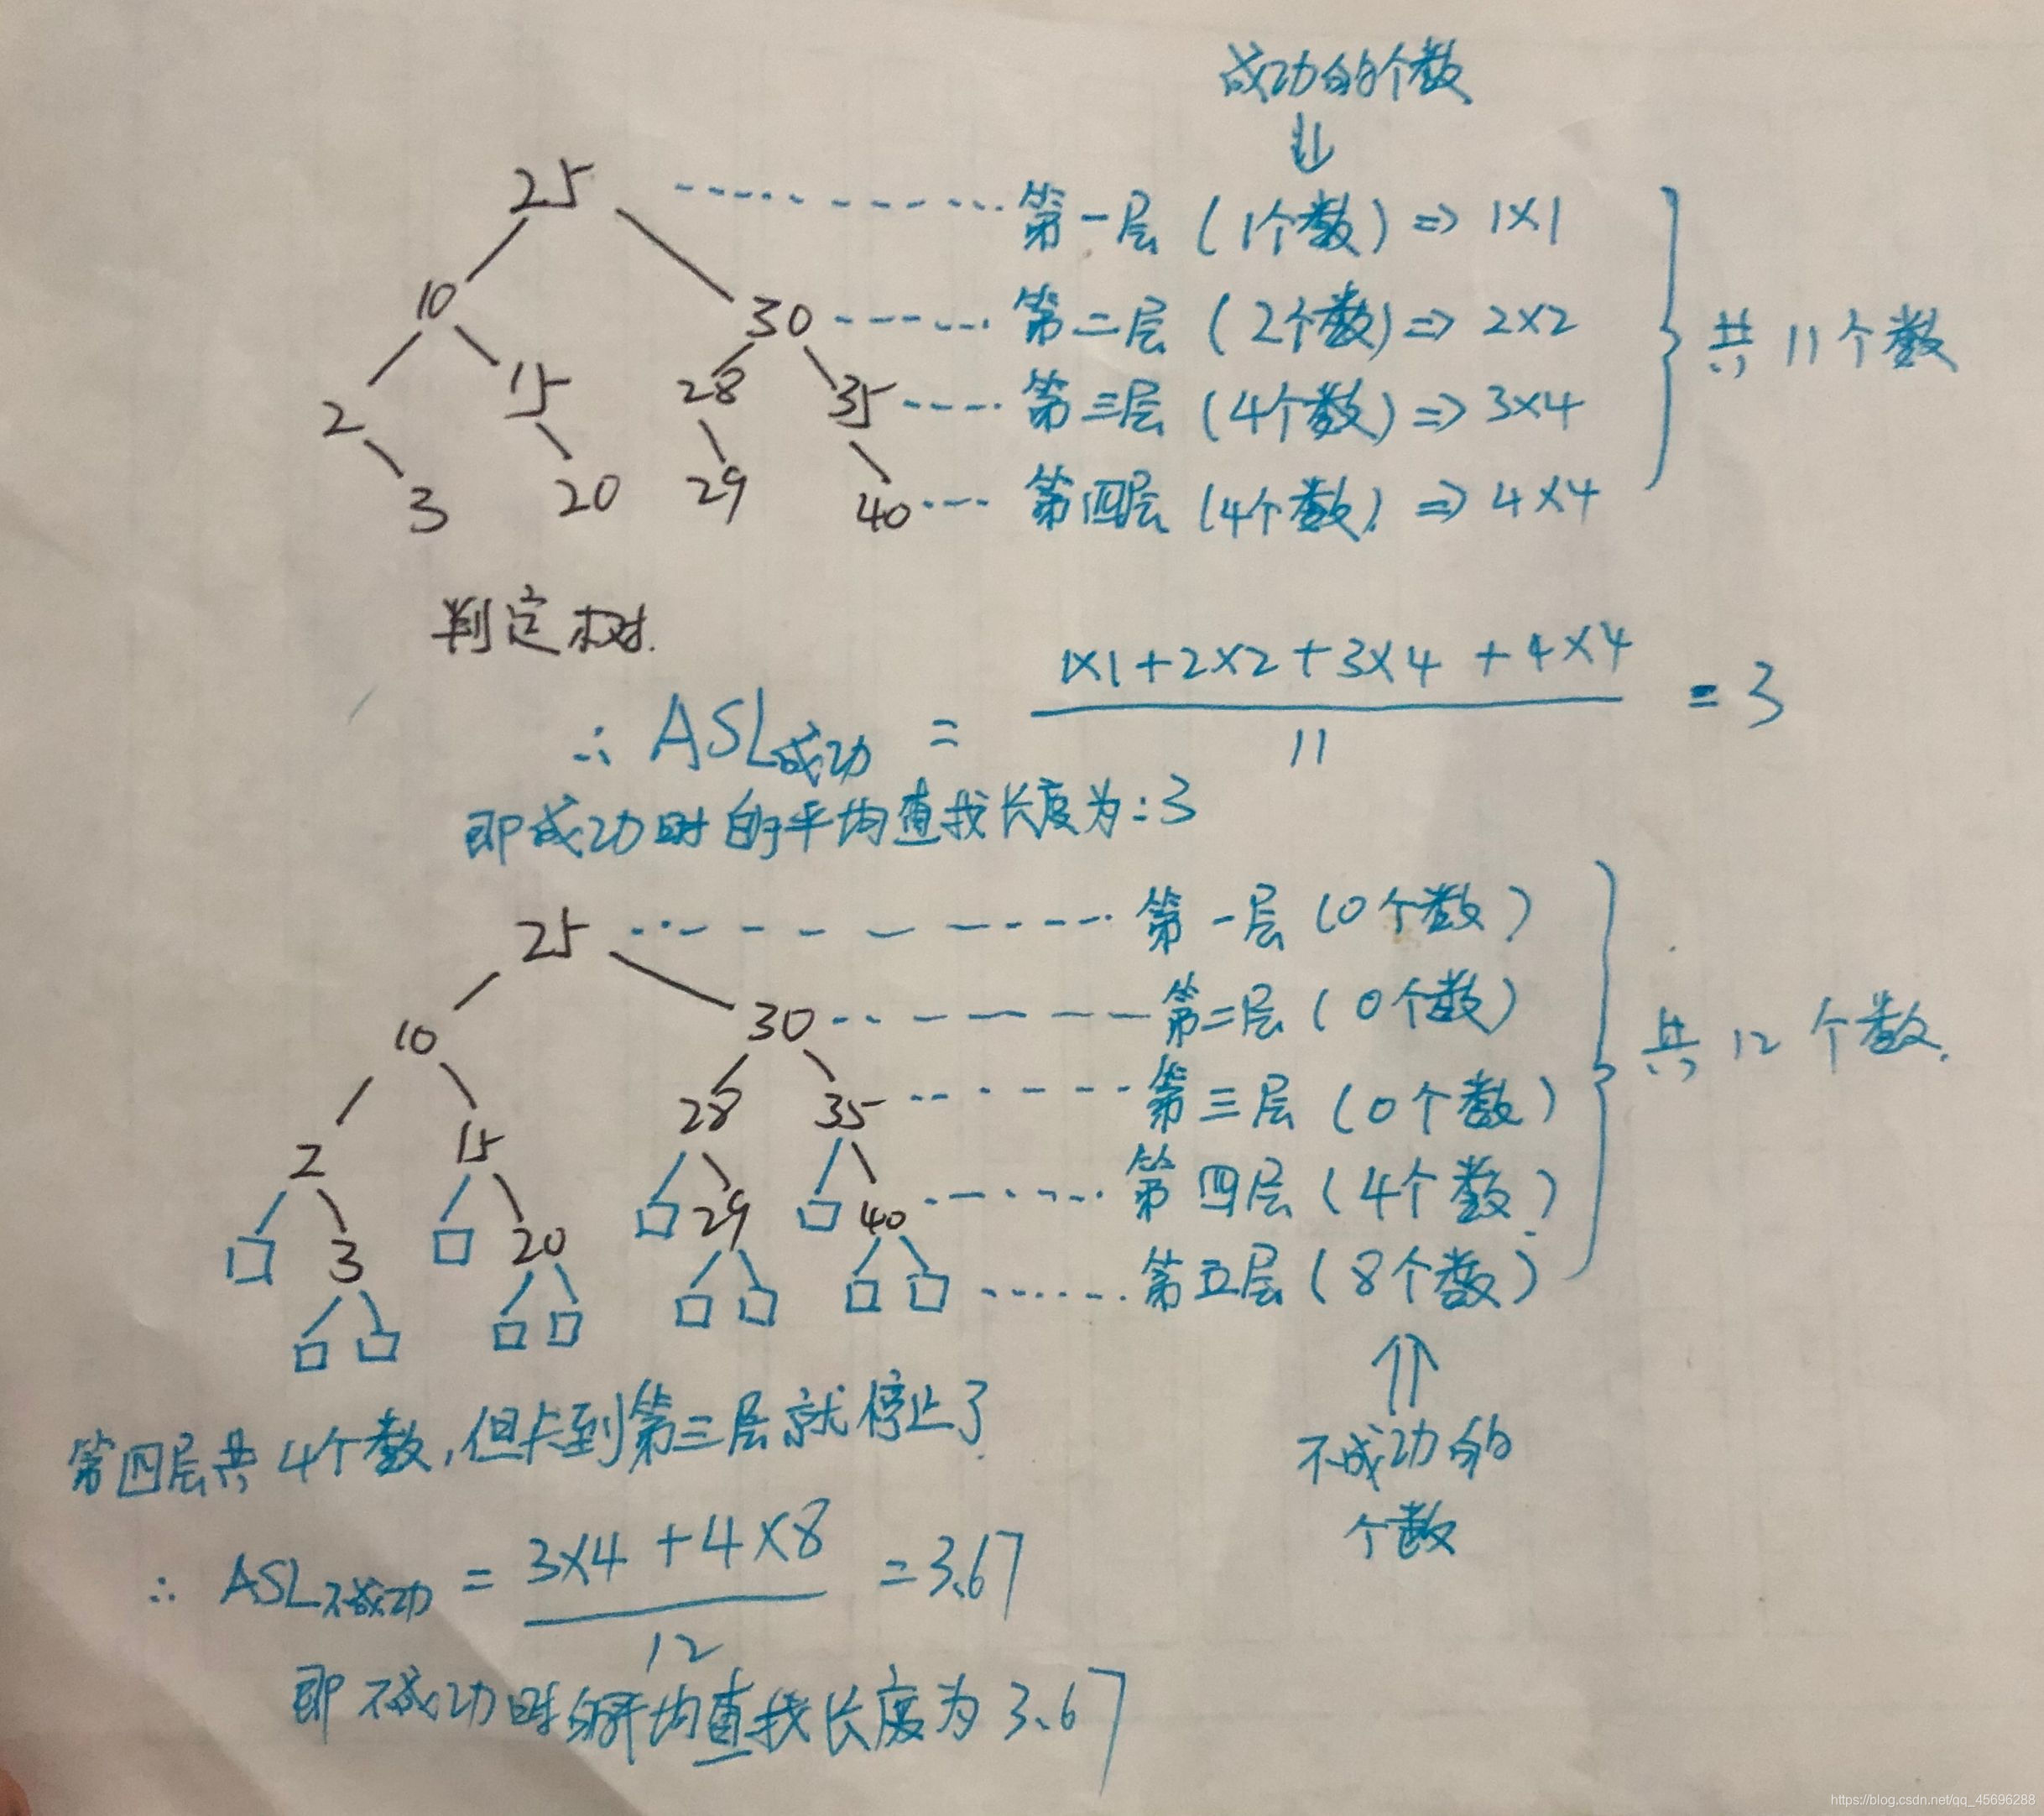 成功的个数
⇓
25 第一层（1个数）⇒ 1×1
10 30 第二层（2个数）⇒ 2×2
共11个数
2 15 28 35 第三层（4个数）⇒ 3×4
3 20 29 40 第四层（4个数）⇒ 4×4
判定树.
∴ ASL成功 = 1×1+2×2+3×4+4×4 / 11 = 3
即成功时的平均查找长度为:3
25 第一层（0个数）
10 30 第二层（0个数）
共12个数.
28 35 第三层（0个数）
2 15 29 40 第四层（4个数）
3 20 第五层（8个数）
⇑
不成功的
个数
第四层共4个数,但卡到第三层就停止了
∴ ASL不成功 = 3×4+4×8 / 12 = 3.67
即不成功时的平均查找长度为3.67
https://blog.csdn.net/qq_45696288